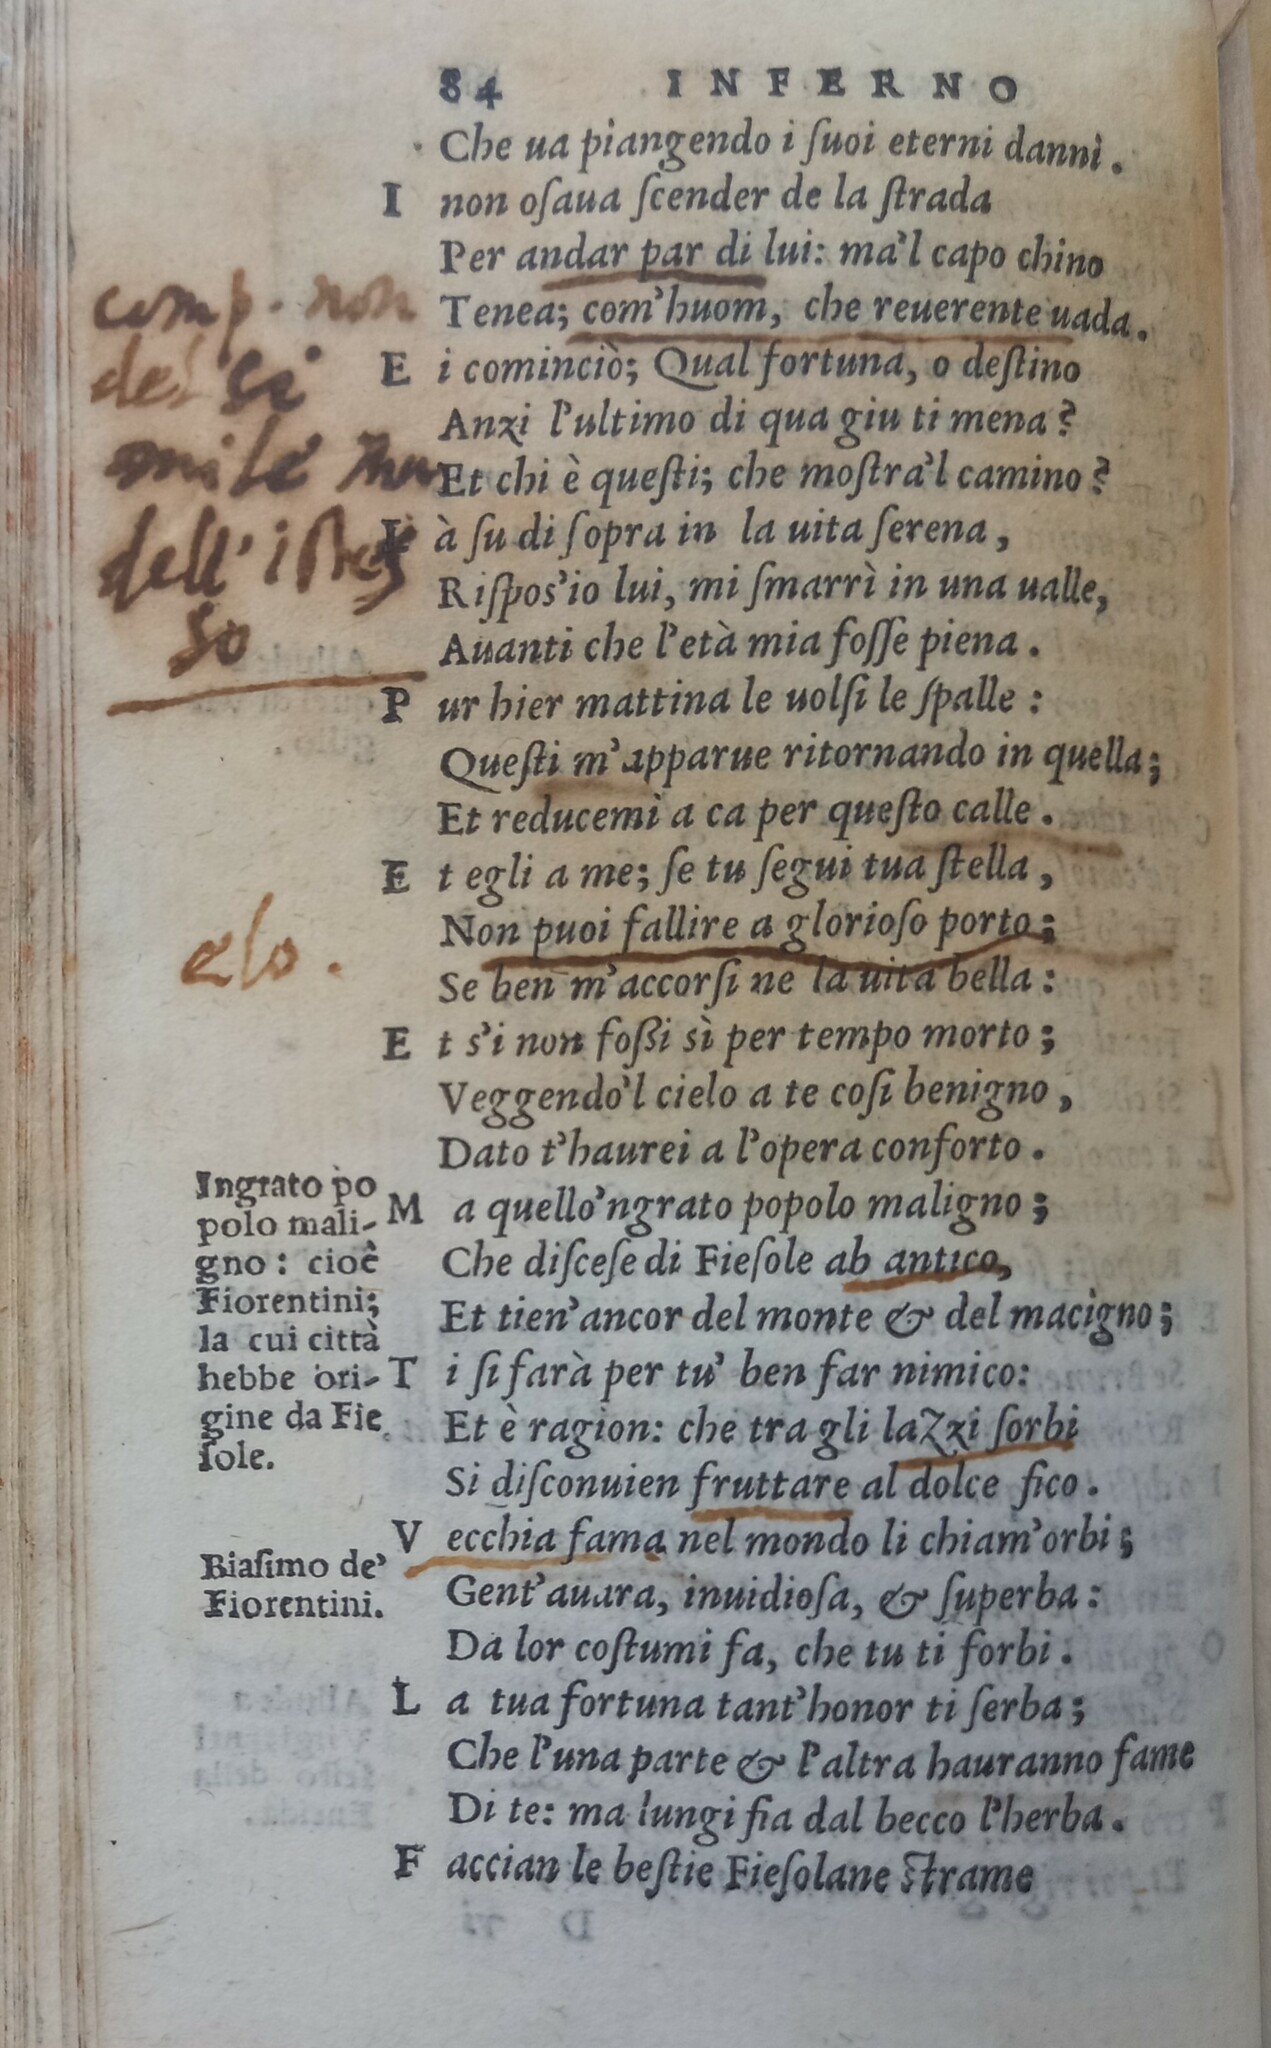 84 INFERNO
Che ua piangendo i ſuoi eterni danni.
I non oſaua ſcender de la ſtrada
Per andar par di lui: ma'l capo chino
Tenea; com'huom, che reuerente uada.
E i cominciò; Qual fortuna, o deſtino
Anzi l'ultimo di qua giu ti mena?
Et chi è queſti; che moſtra'l camino?
L à ſu di ſopra in la uita ſerena,
Riſpos'io lui, mi ſmarrì in una ualle,
Auanti che l'età mia foſſe piena.
P ur hier mattina le uolſi le ſpalle:
Queſti m'apparue ritornando in quella;
Et reducemi a ca per queſto calle.
E t egli a me; ſe tu ſegui tua ſtella,
Non puoi fallire a glorioſo porto;
Se ben m'accorſi ne la uita bella:
E t s'i non foßi sì per tempo morto;
Veggendo'l cielo a te coſi benigno,
Dato t'haurei a l'opera conforto.
M a quello'ngrato popolo maligno;
Che diſceſe di Fieſole ab antico,
Et tien'ancor del monte & del macigno;
T i ſi farà per tu' ben far nimico:
Et è ragion: che tra gli lazzi ſorbi
Si diſconuien fruttare al dolce fico.
V ecchia fama nel mondo li chiam'orbi;
Gent'auara, inuidioſa, & ſuperba:
Da lor coſtumi fa, che tu ti forbi.
L a tua fortuna tant'honor ti ſerba;
Che l'una parte & l'altra hauranno fame
Di te: ma lungi fia dal becco l'herba.
F accian le beſtie Fieſolane ſtrame
comp. non
del si
mile ma
dell'istes
so
elo.
Ingrato po
polo mali-
gno: cioè
Fiorentini;
la cui città
hebbe ori-
gine da Fie
ſole.
Biaſimo de'
Fiorentini.